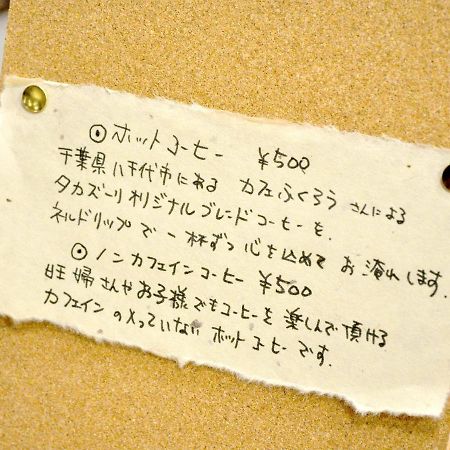 ⦿ ホットコーヒー ¥500
千葉県八千代市にある カフェふくろう さんによる
タカズーリオリジナルブレンドコーヒーを、
ネルドリップで一杯ずつ心を込めて お淹れします。
⦿ ノンカフェインコーヒー ¥500
妊婦さんやお子様でもコーヒーを楽しんで頂ける
カフェインの入っていない ホットコーヒーです。